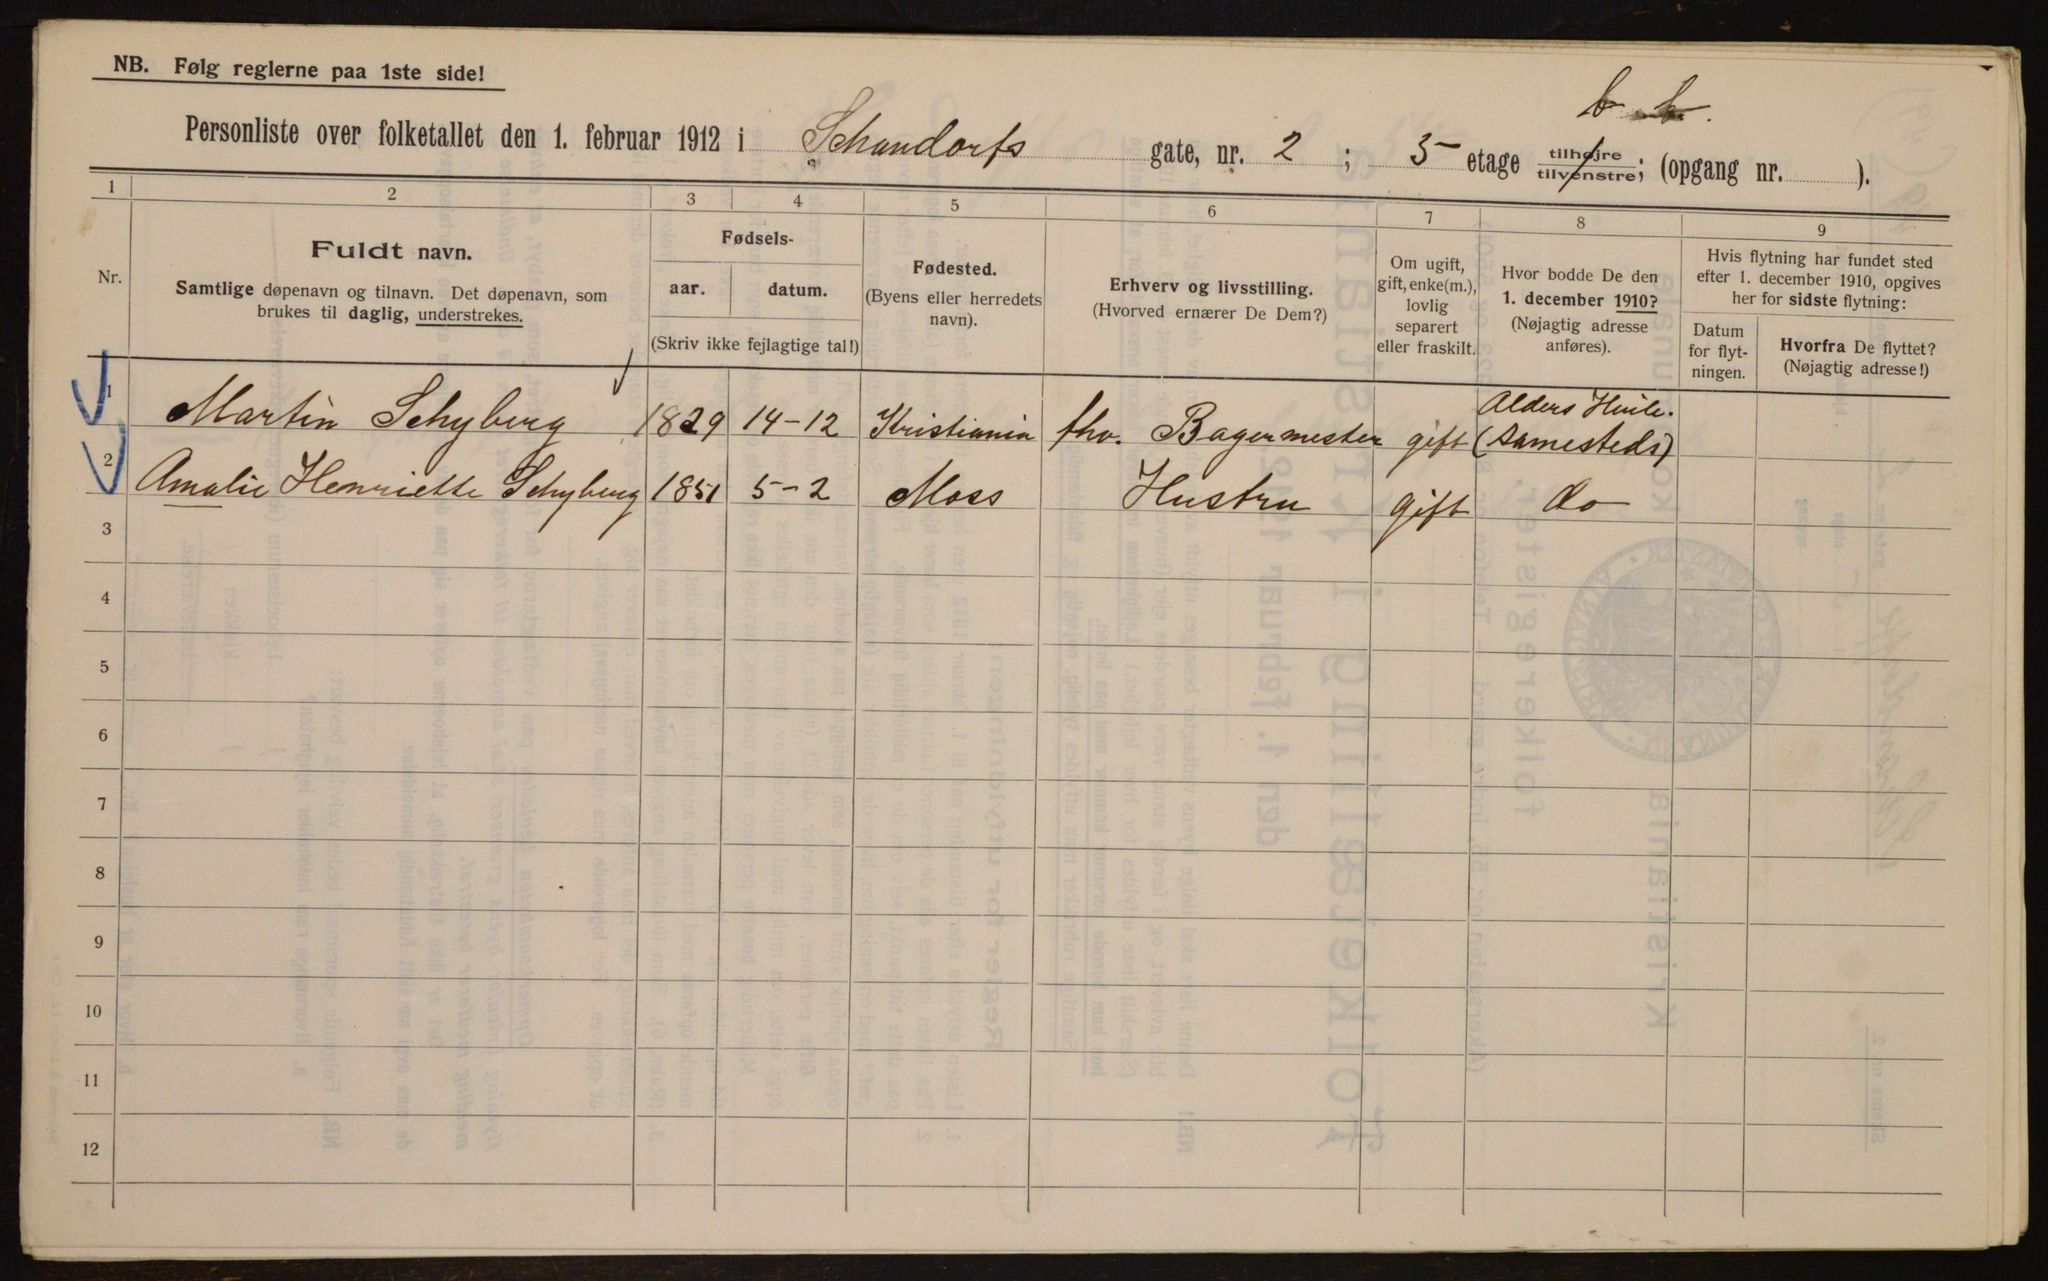 NB. Følg reglerne paa 1ste side!
b b.
Personliste over folketallet den 1. februar 1912 i Schandorfs gate, nr. 2; 3 etage tilhøjre/tilvenstre; (opgang nr. ).
1 2 3 4 5 6 7 8 9
Nr.
Fuldt navn.
Samtlige døpenavn og tilnavn. Det døpenavn, som
brukes til daglig, understrekes.
Fødsels-
aar. datum.
(Skriv ikke fejlagtige tal!)
Fødested.
(Byens eller herredets
navn).
Erhverv og livsstilling.
(Hvorved ernærer De Dem?)
Om ugift,
gift, enke(m.),
lovlig
separert
eller fraskilt.
Hvor bodde De den
1. december 1910?
(Nøjagtig adresse
anføres).
Hvis flytning har fundet sted
efter 1. december 1910, opgives
her for sidste flytning:
Datum
for flyt-
ningen.
Hvorfra De flyttet?
(Nøjagtig adresse!)
1 Martin Schyberg 1829 14-12 Kristiania fhv. Bagermester gift Alders Hvile. (samesteds)
2 Amalie Henriette Schyberg 1851 5-2 Moss Hustru gift do
3
4
5
6
7
8
9
10
11
12